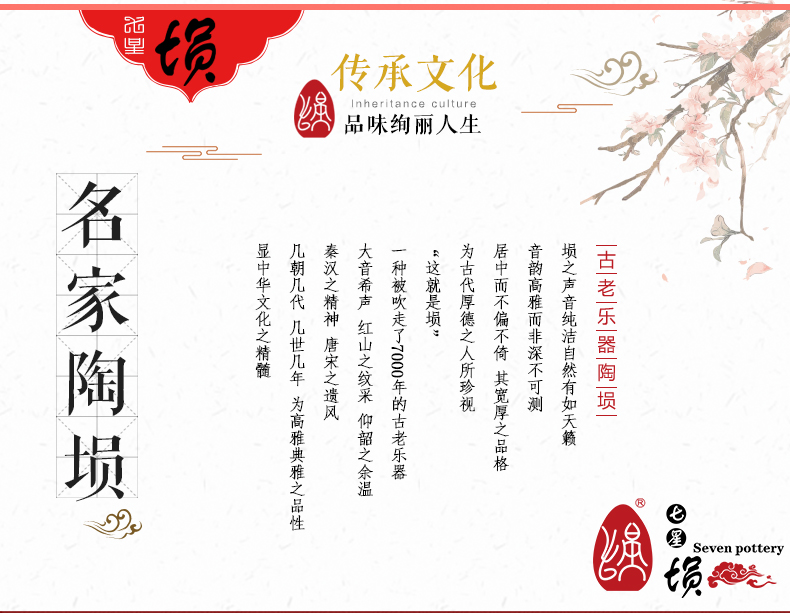 七星
埙
传承文化
Inheritance culture
品味绚丽人生
名家陶埙
古老乐器陶埙
埙之声音纯洁自然有如天籁
音韵高雅而非深不可测
居中而不偏不倚 其宽厚之品格
为古代厚德之人所珍视
“这就是埙”
一种被吹走了7000年的古老乐器
大音希声 红山之纹采 仰韶之余温
秦汉之精神 唐宋之遗风
几朝几代 几世几年 为高雅典雅之品性
显中华文化之精髓
®
七星
埙
Seven pottery